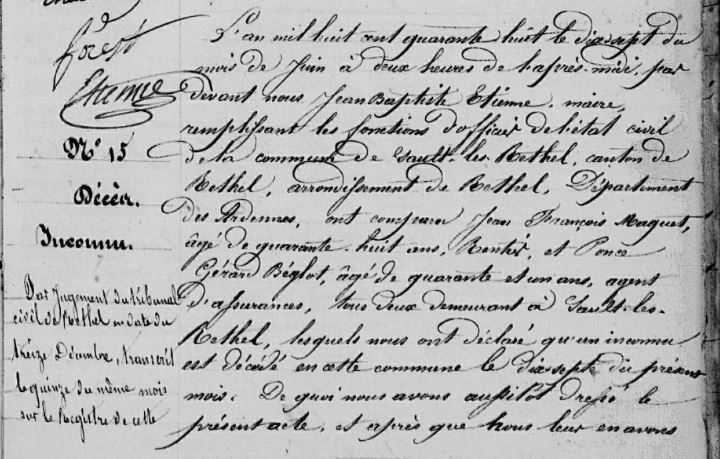 forest
Etienne
N° 15
Décès.
Inconnu.
Par Jugement du tribunal
civil de Rethel en date du
treize Décembre, transcrit
le quinze du même mois
sur le Registre de cette
L'an mil huit cent quarante huit le dix sept du
mois de Juin à deux heures de l'après-midi, par
devant nous Jean Baptiste Etienne, maire,
remplissant les fonctions d'officier de l'état civil
de la commune de Sault-les-Rethel, canton de
Rethel, arrondissement de Rethel, Département
des Ardennes, ont comparu Jean François Maquet,
âgé de quarante-huit ans, Rentier, et Ponce
Gérard Béglot, âgé de quarante et un ans, agent
d'assurances, tous deux demeurant à Sault-les-
Rethel, lesquels nous ont déclaré qu'un inconnu
est décédé en cette commune le dix sept du présent
mois. De quoi nous avons aussitôt dressé le
présent acte, et après que nous leur en avons